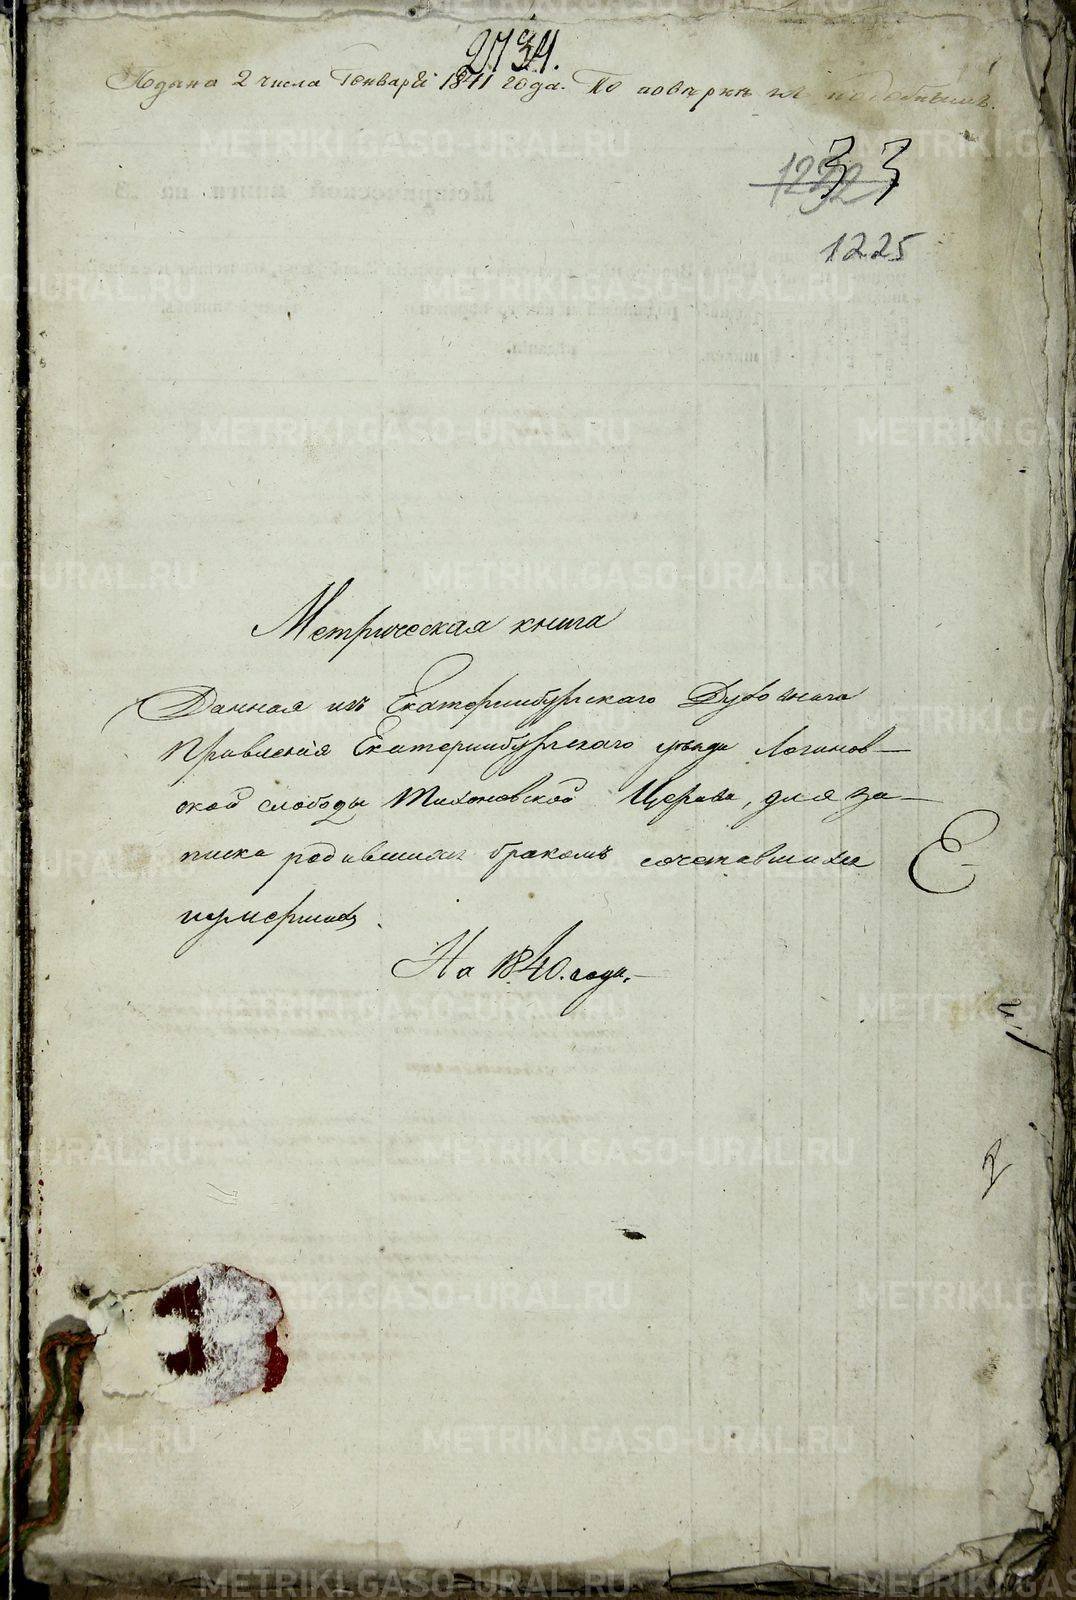 2734.
Подана 2 числа Генваря 1841 года. По поверке
1232
33
1225
Метрическая книга
Данная изъ Екатеринбургскаго Духовнаго
Правленія Екатеринбургскаго уѣзда Логинов-
ской слободы Тихоновской Церкви, для за-
писки родившихся бракомъ сочетавшихся
и умершихъ.
Е
На 1840. годъ.
2
METRIKI.GASO-URAL.RU